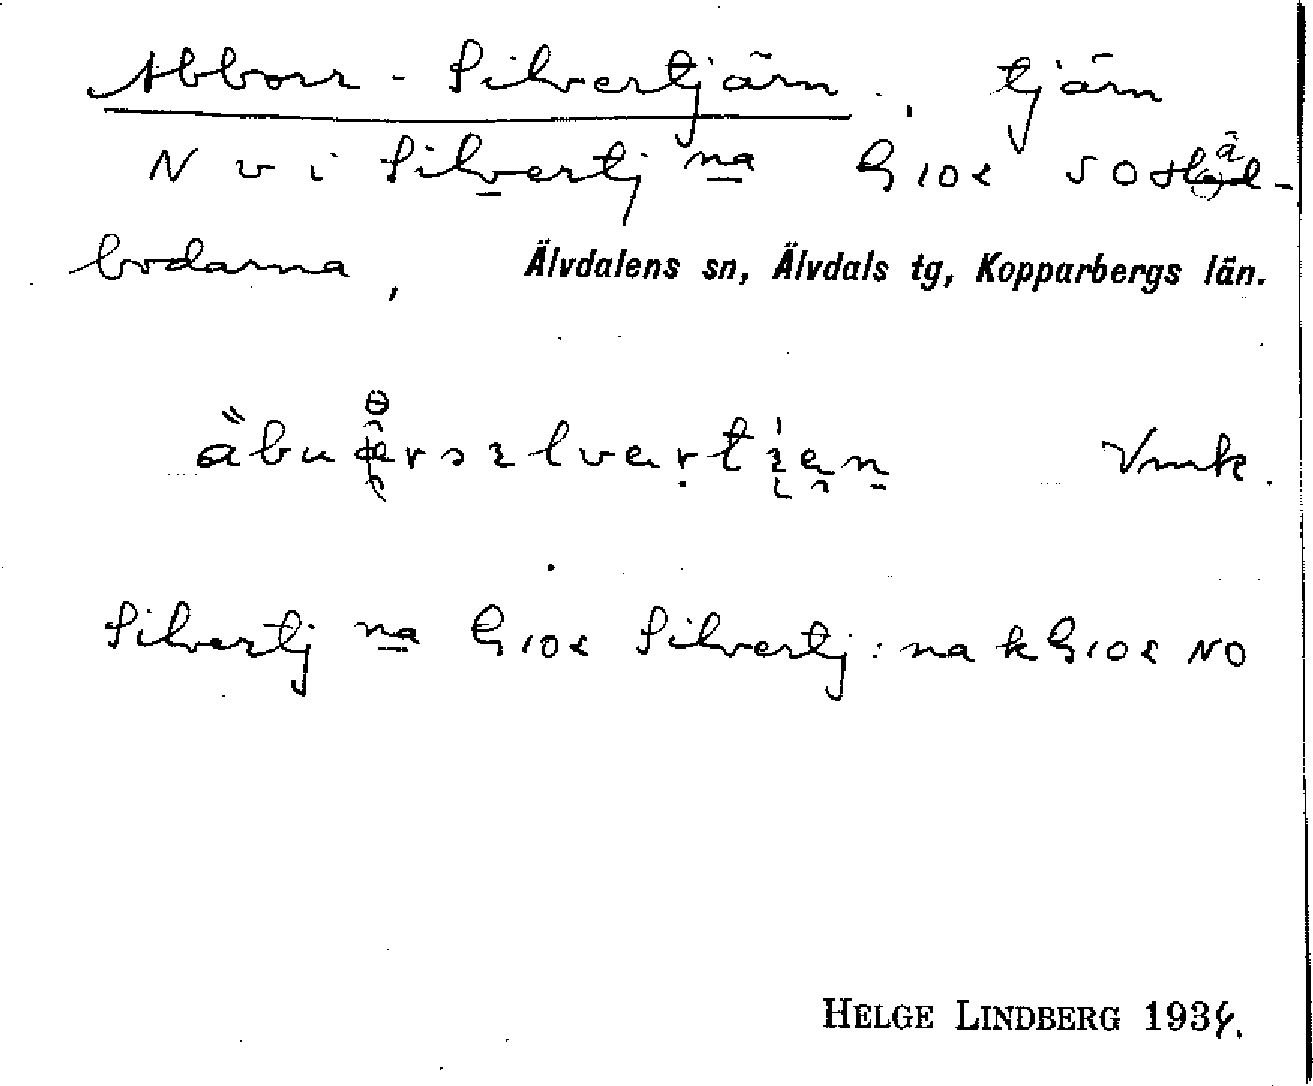 Abborr-Silvertjärn., tjärn
N v i Silvertj na G10e SO
bodarna, Älvdalens sn, Älvdals tg, Kopparbergs län.
Vmk.
Silvertj na G10e Silvertj:na k G10e NO
HELGE LINDBERG 1934.